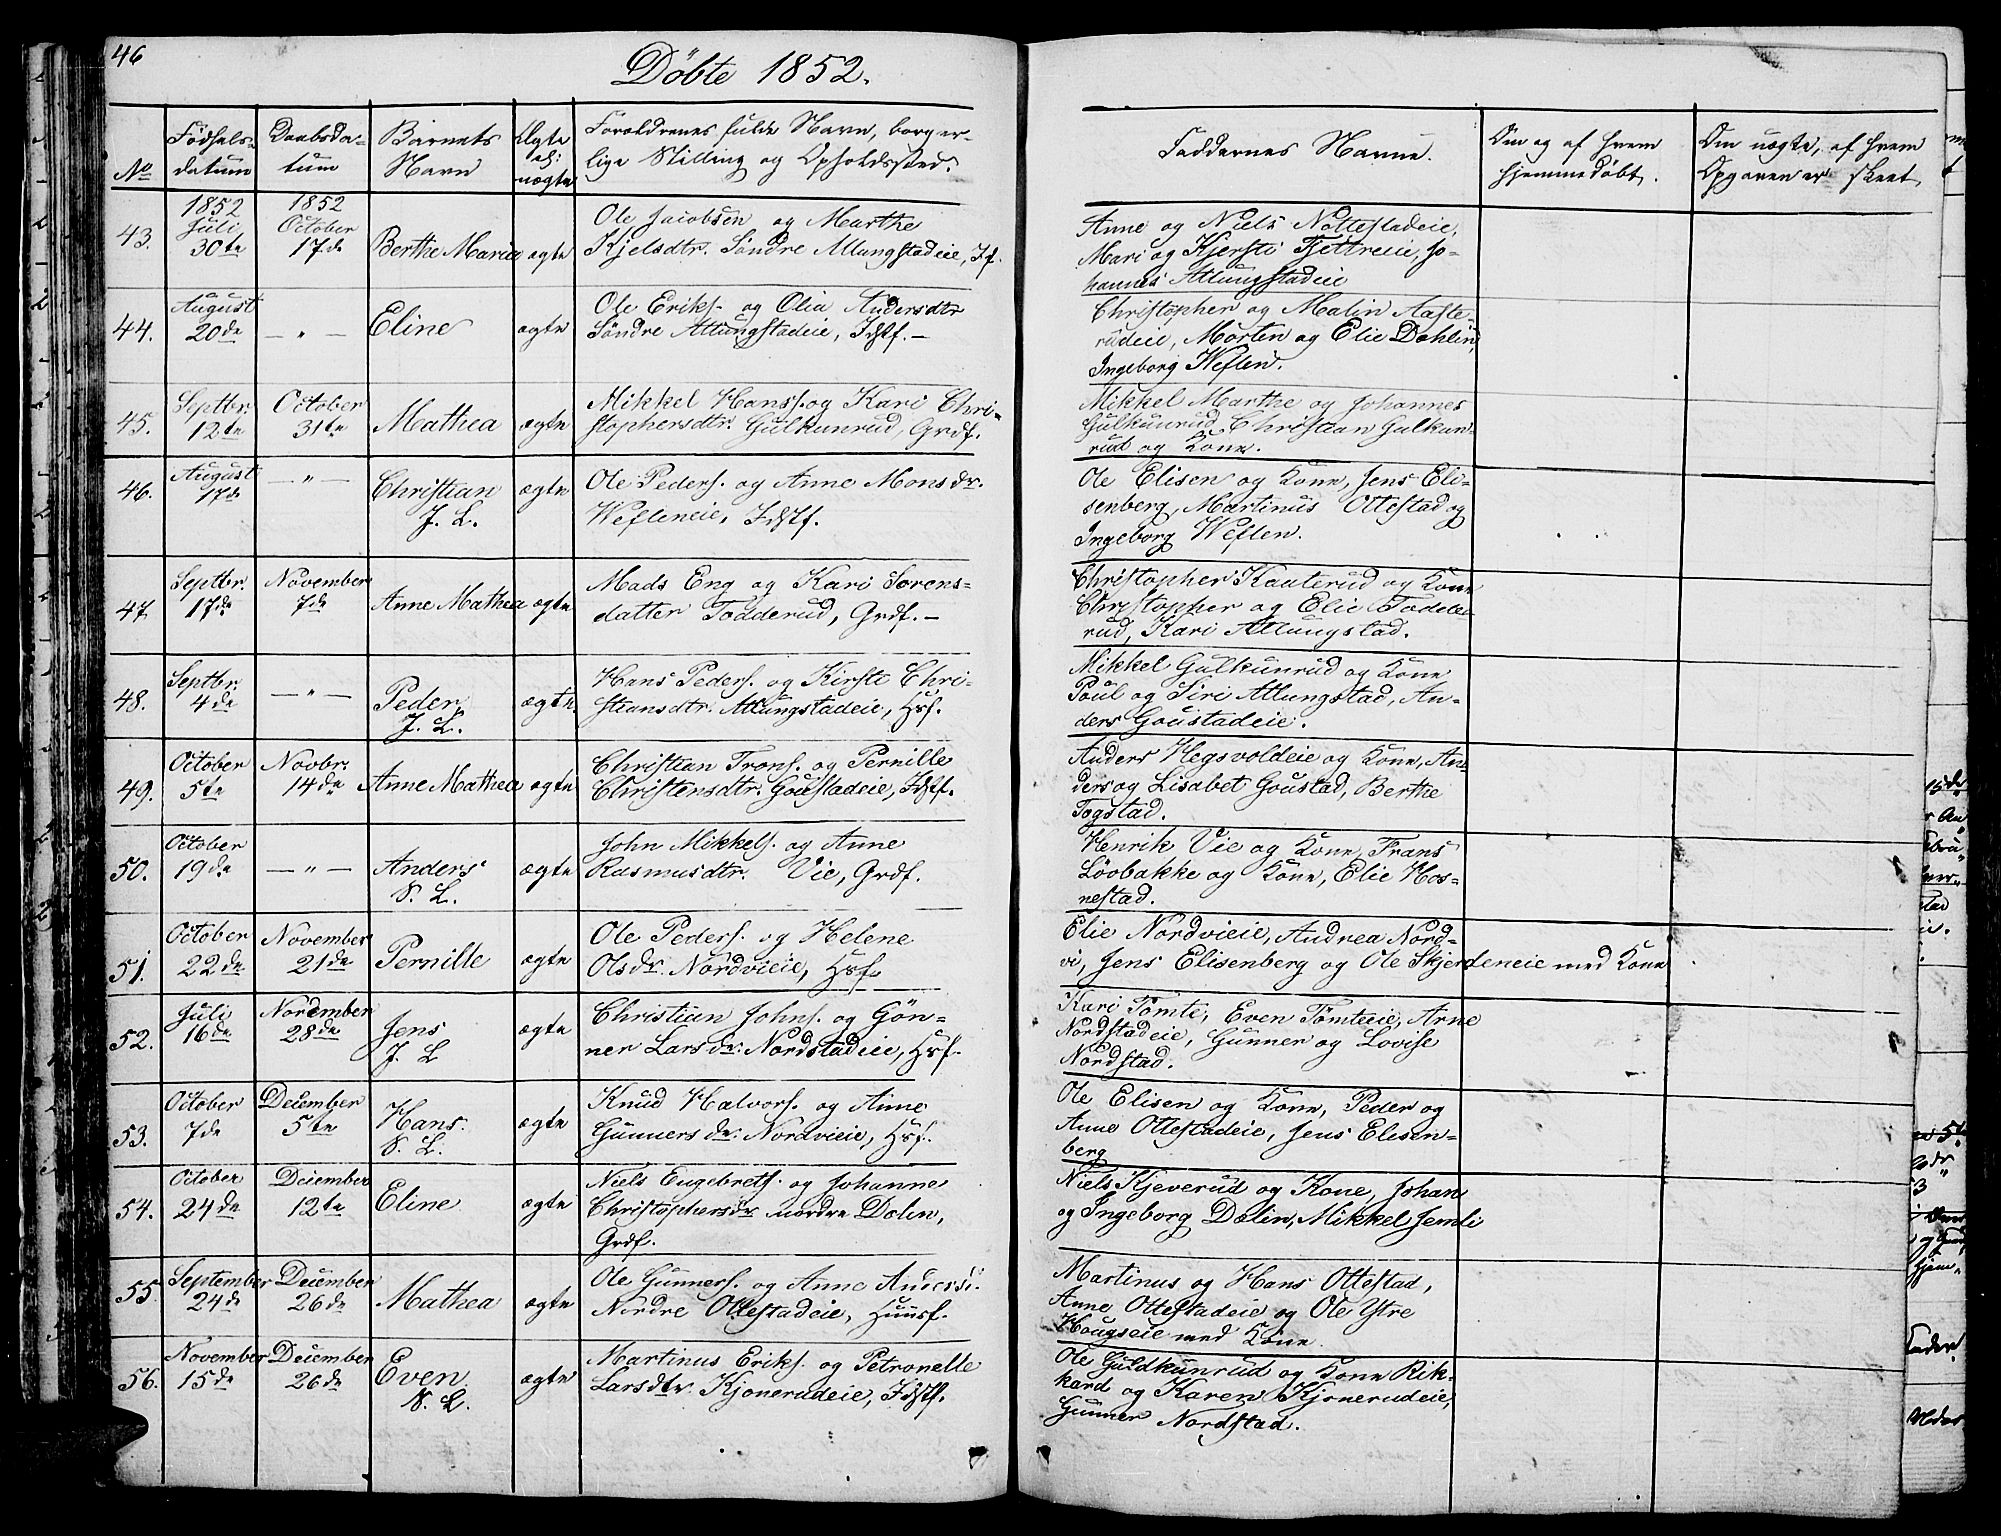 46
Döbte 1852.
No
Födsels-
datum
Daabsda-
tum
Barnets
Navn
Ægte
el:
uægte
Foroldrenes fulde Navn, borger-
lige Stilling og Opholdssted.
Faddernes Navne.
Om og af hvem
hjemmedöbt.
Om uægte, af hvem
Opgaven er skeet
43.
1852
Juli
30te
1852
October
17de
Berthe Maria
ægte
Ole Jacobsen og Marthe
Kjelsdtr. Söndre Allungstadeie, If.
Anne og Niels Nöttestadeie,
Mari og Kjersti Tjettreeie, Jo-
hannes Atlungstadeie
44.
August
20de
— " —
Eline
ægte
Ole Eriks. og Olia Andersdtr
Söndre Atlungstadeie, Idstf. —
Christopher og Malin Aaste-
rudeie, Morten og Elie Dahlin,
Ingeborg Weflen.
45.
Septbr.
12te
October
31te
Mathea
ægte
Mikkel Hanss. og Kari Chri-
stophersdtr. Gulkunrud, Grdf.
Mikkel Marthe og Johannes
Gulkunrud, Christian Gulkun-
rud og Kone.
46.
August
17de
— " —
Christian
J. L.
ægte
Ole Peders. og Anne Monsdr.
Wefleneie, Idstf.
Ole Elisen og Kone, Jens Eli-
senberg, Martinus Ottestad og
Ingeborg Weflen.
47
Septbr.
17de
November
7de
Anne Mathea
ægte
Mads Eng og Kari Sorens-
datter Todderud, Grdf. —
Christopher Kauterud og Kone
Christopher og Elie Todde-
rud, Kari Atlungstad.
48.
Septbr.
4de
— " —
Peder
J. L.
ægte.
Hans Peders. og Kirste Chri-
stiansdtr. Atlungstadeie, Hsf.
Mikkel Gulkunrud og Kone
Poul og Siri Atlungstad, An-
ders Goustadeie.
49.
October
5te
Novbr.
14de
Anne Mathea
ægte
Christian Trons. og Pernille
Christensdtr. Goustadeie, Idstf.
Anders Hegsvoldeie og Kone, An-
ders og Lisabet Goustad, Berthe
Togstad.
50.
October
19de
— " —
Anders
S. L.
ægte
John Mikkels. og Anne
Rasmusdtr. Vie, Grdf.
Henrik Vie og Kone, Frans
Löobakke og Kone, Elie Hos-
nestad.
51.
October
22de
November
21de
Pernille
ægte
Ole Peders. og Helene
Olsdr. Nordvieie, Hsf.
Elie Nordvieie, Andrea Nord-
vi, Jens Elisenberg og Ole Skjerdeneie med Kone
52.
Juli
16de
November
28de
Jens
J. L
ægte
Christian Johns. og Gön-
ner Larsdr. Nordstadeie, Hsf.
Kari Tömte, Even Tömteeie, Arne
Nordstadeie, Gunner og Lovise
Nordstad.
53.
October
7de
December
5te
Hans.
S. L.
ægte
Knud Halvors. og Anne
Gunnersdr. Nordvieie, Hsf.
Ole Elisen og Kone, Peder og
Anne Ottestadeie, Jens Elisen-
berg
54.
October
24de
December
12te
Eline
ægte
Niels Engebrets. og Johanne
Christophersdr nordre Dolin,
Grdf.
Niels Kjeverud og Kone, Johan
og Ingeborg Dolin, Mikkel Jemli
55.
September
24de
December
26de
Mathea
ægte
Ole Gunners. og Anne
Nordre Ottestadeie, Huusf.
Martinus og Hans Ottestad,
Anne Ottestadeie og Ole Ystre
Hougseie med Kone.
56.
November
15de
December
26de
Even
S. L.
ægte
Martinus Eriks. og Petronelle
Larsdtr. Kjonerudeie, Idstf.
Ole Guldkunrud og Kone Rik-
kard og Karen Kjonerudeie,
Gunner Nordstad.